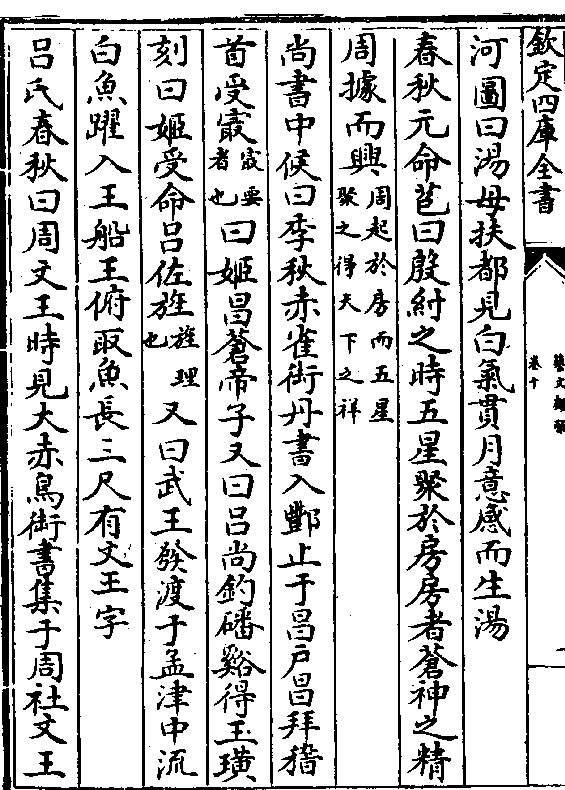 欽定四庫全書
藝文類聚
卷十
河圖曰湯母扶都見白氣貫月意感而生湯
春秋元命苞曰殷紂之時五星聚於房房者蒼神之精
周據而興周起於房而五星聚之得天下之祥
尚書中候曰季秋赤雀銜丹書入酆止于昌户昌拜稽
首受㝡㝡要者也曰姬昌蒼帝子又曰吕尚釣磻谿得玉璜
刻曰姬受命吕佐旌旌理也又曰武王發渡于孟津中流
白魚躍入王船王俯取魚長三尺有文王字
吕氏春秋曰周文王時見大赤烏銜書集于周社文王